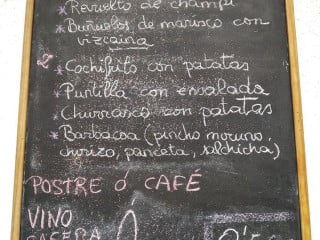 Revuelto de champi
* Buñuelos de marisco con
vizcaina
2° * Cochifrito con patatas
* Puntilla con ensalada
* Churrasco con patatas
* Barbacoa (pincho moruno,
chorizo, panceta, salchicha)
POSTRE ó CAFÉ
VINO
CASERA